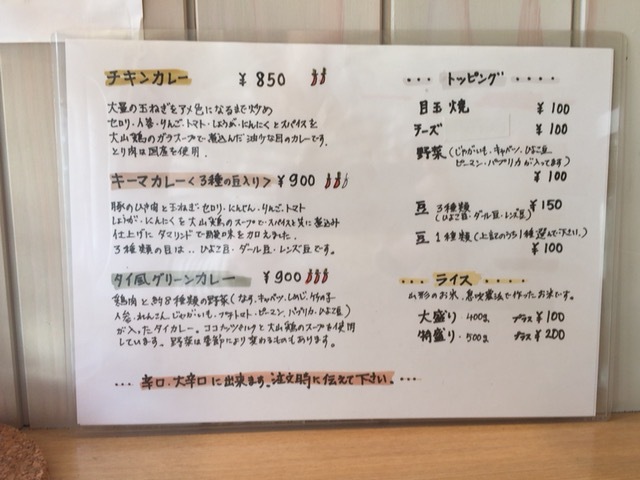 チキンカレー ¥850
大量の玉ねぎをアメ色になるまで炒め
セロリ・人参・りんご・トマト・しょうが・にんにくとスパイスを
大山鶏のガラスープで煮込んだ油少な目のカレーです。
とり肉は国産を使用。
キーマカレー〈3種の豆入り〉 ¥900
豚のひき肉と玉ねぎ・セロリ・にんじん・りんご・トマト
しょうが・にんにくを大山鶏のスープで・スパイスと共に煮込み
仕上げにタマリンドで酸味を加えました。
3種類の豆は‥ひよこ豆・ダール豆・レンズ豆です。
タイ風グリーンカレー ¥900
鶏肉と約8種類の野菜(なす・キャベツ・しめじ・竹の子
人参・れんこん・じゃがいも・プチトマト・ピーマン・パプリカ・ひよこ豆)
が入ったタイカレー。ココナッツミルクと大山鶏のスープを使用
しています。野菜は季節により変わるものもあります。
… 辛口・大辛口に出来ます。注文時に伝えて下さい。…
… トッピング ‥‥
目玉焼 ¥100
チーズ ¥100
野菜(じゃがいも・キャベツ・ひよこ豆
ピーマン・パプリカが入ってます)
¥100
豆 3種類 ¥150
(ひよこ豆・ダール豆・レンズ豆)
豆 1種類(上記のうち1種選んで下さい。)
¥100
‥‥ ライス ‥‥
山形のお米、農法で作ったお米です。
大盛り 400g プラス ¥100
特盛り・500g プラス ¥200